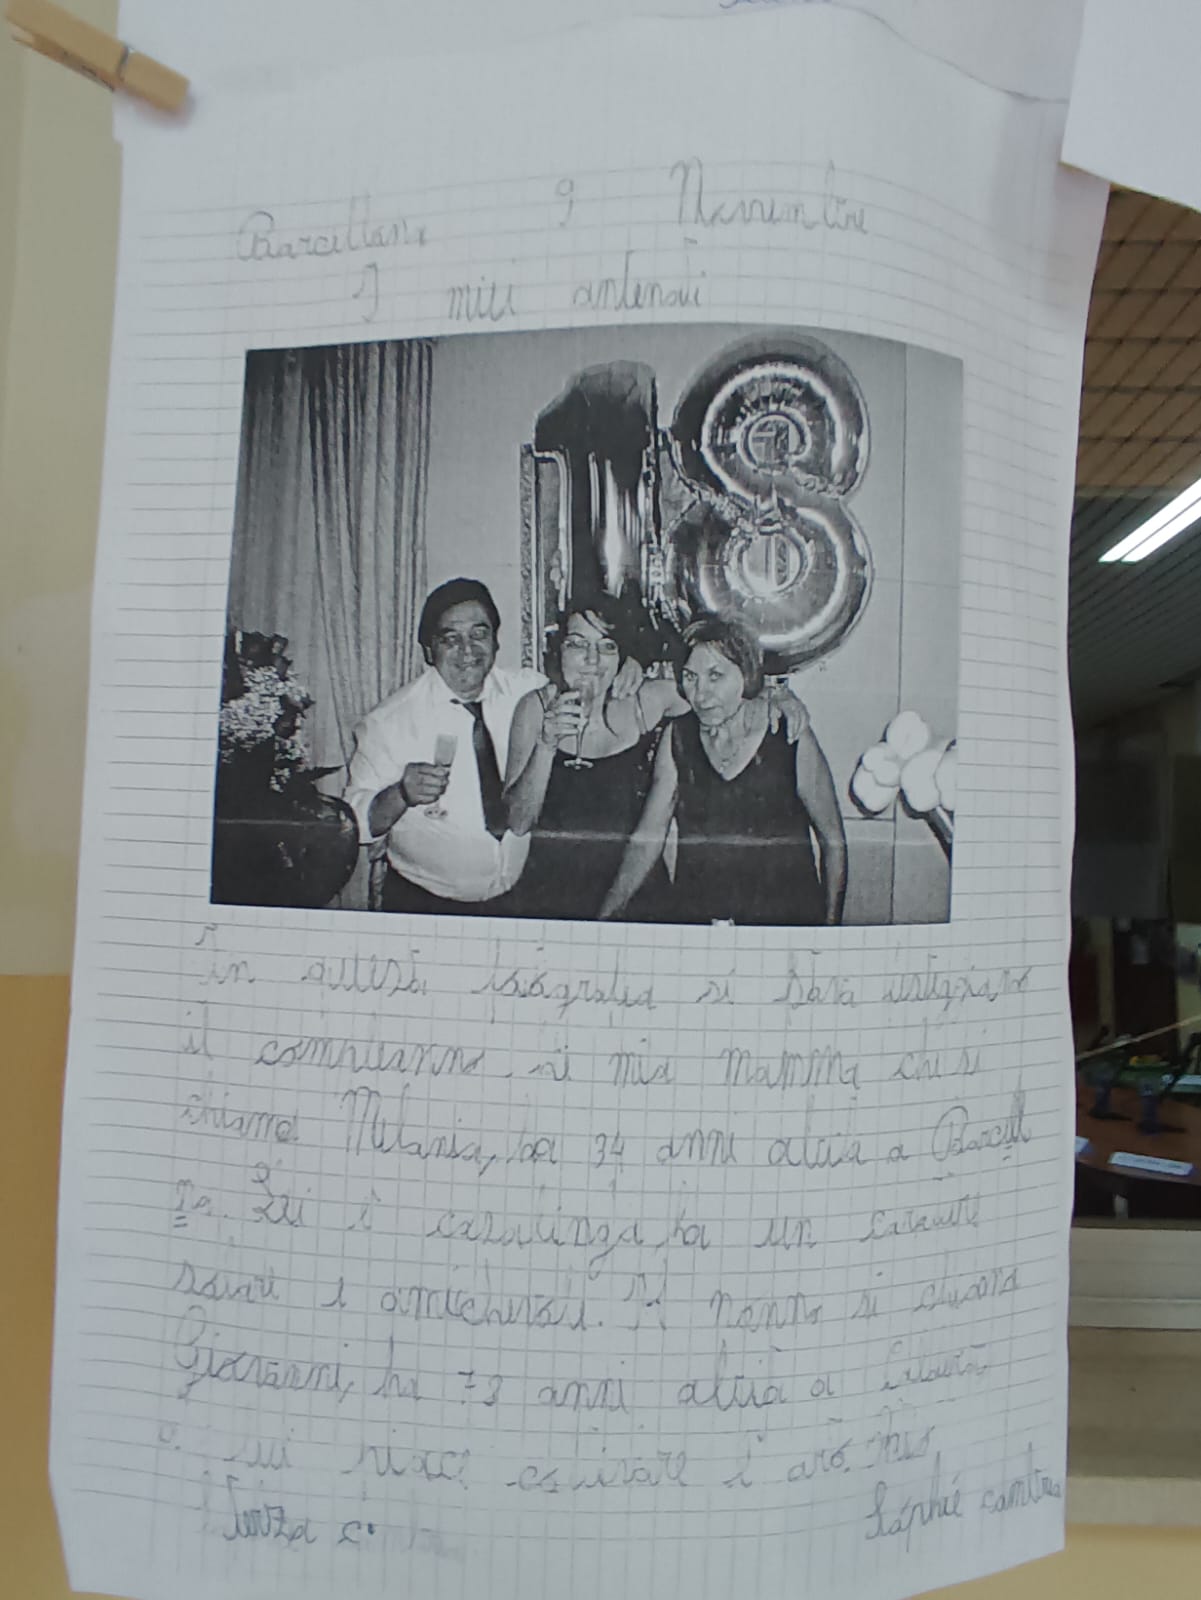 Barcellona 9 Novembre
I miei antenati
18
In questa fotografia si stava festeggiando
il compleanno di mia mamma che si
chiama Melania, ha 34 anni abita a Barcello
na. Lei è casalinga, ha un carattere
solare e amichevole. Il nonno si chiama
Giovanni, ha 73 anni abita a
lui piace coltivare l'orto.
Terza C